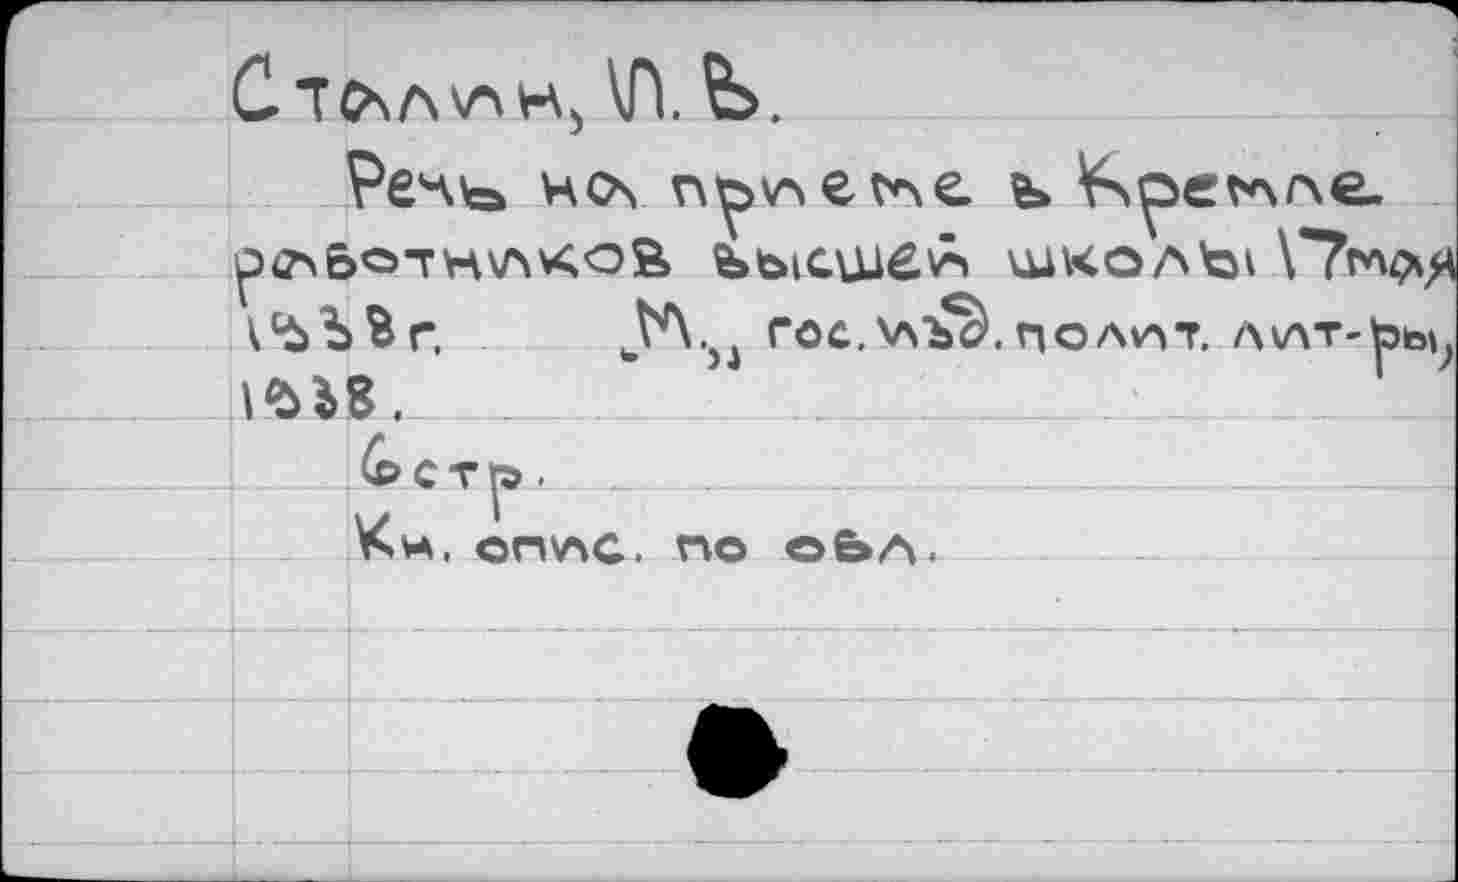 Сталин, И. В.
Речь на приеме в Кремле
работников высшей школы 17 мая
1938 г. М., Гос. изд. полит. лит-ры,
1938.
6 стр.
Кн. опис. по обл.